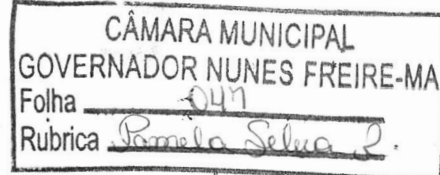 CÂMARA MUNICIPAL
GOVERNADOR NUNES FREIRE-MA
Folha 047
Rubrica Pamela Silva